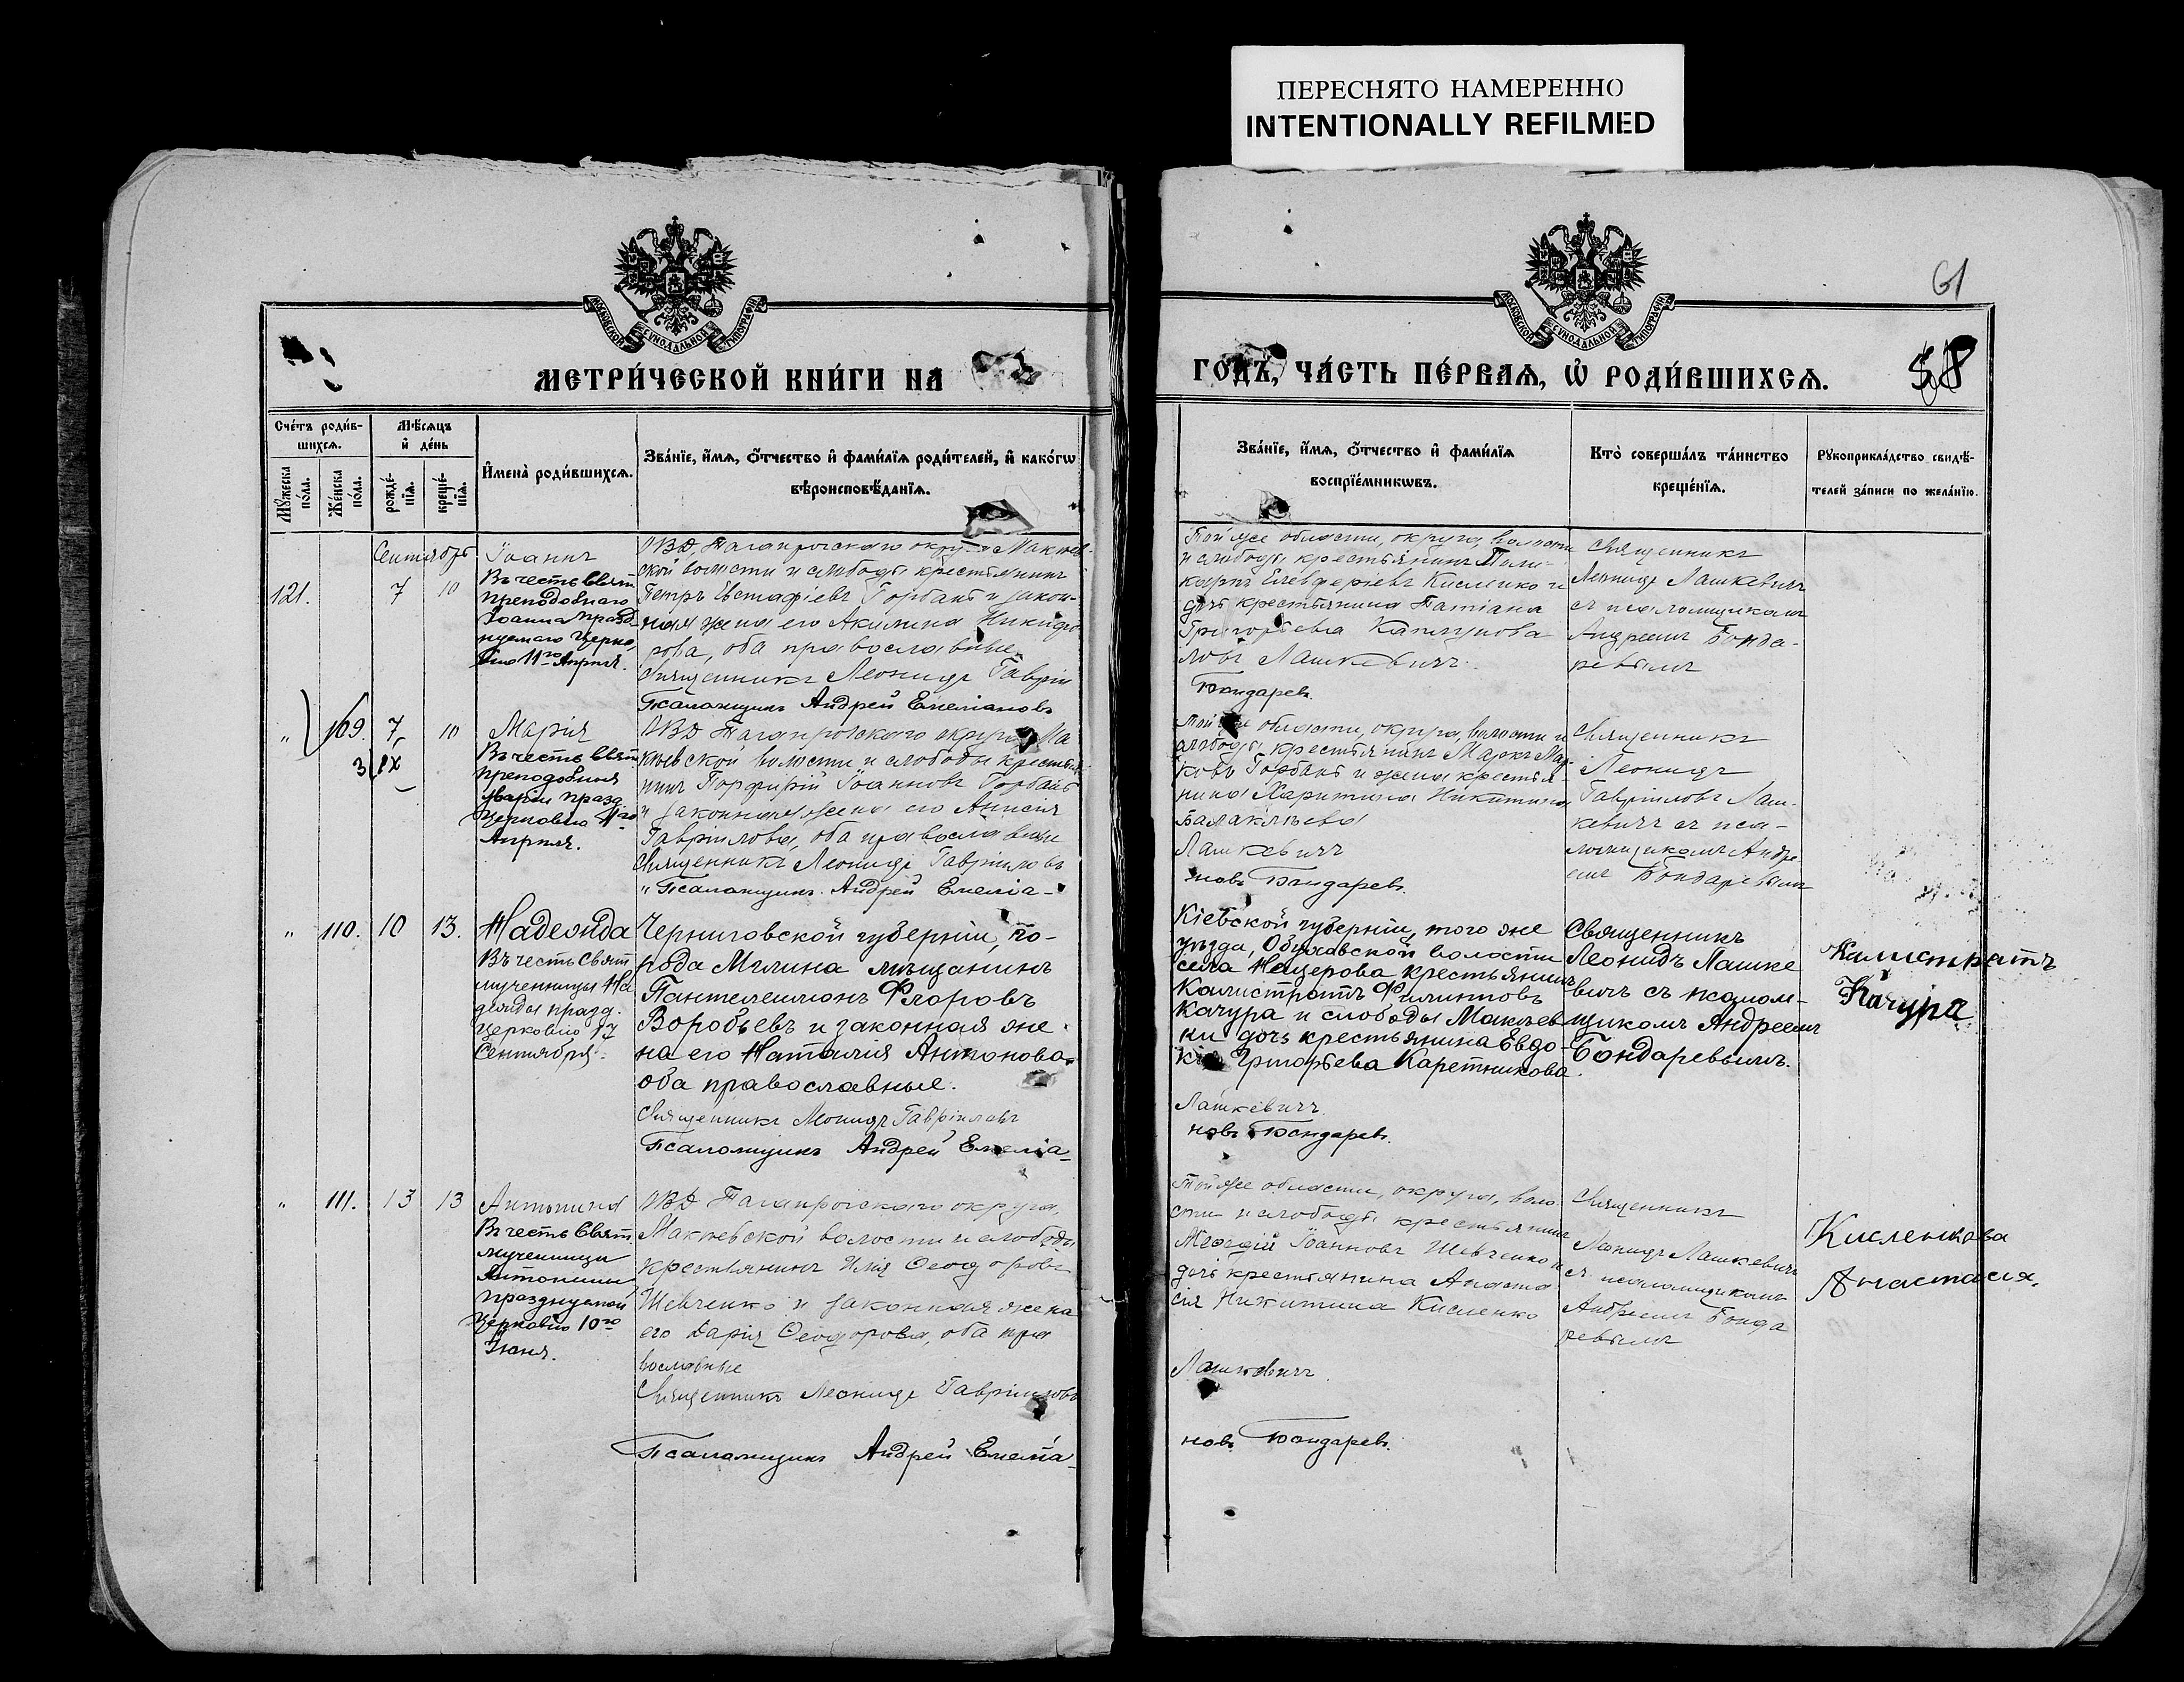 ПЕРЕСНЯТО НАМЕРЕННО
INTENTIONALLY REFILMED
61
МОСКОВСКОЙ СѴНОДАЛЬНОЙ ТИПОГРАФІИ
МОСКОВСКОЙ СѴНОДАЛЬНОЙ ТИПОГРАФІИ
МЕТРИ́ЧЕСКОЙ КНИ́ГИ НА
ГОДЪ, ЧА́СТЬ ПЕ́РВАѦ, Ѡ РОДИ́ВШИХСѦ.
58
Сче́тъ роди́в-
шихсѧ.
Мꙋ́жеска
по́ла.
Же́нска
по́ла.
Мѣ́сѧцъ
и҆ де́нь
рожде́-
нїѧ.
креще́-
нїѧ.
И҆мена̀ роди́вшихсѧ.
Зва́нїе, и҆́мѧ, ѻ҆́тчество и҆ фами́лїѧ роди́телей, и҆ како́гѡ
вѣроисповѣ́данїѧ.
Зва́нїе, и҆́мѧ, ѻ҆́тчество и҆ фами́лїѧ
воспрїе́мникѡвъ.
Кто̀ соверша́лъ та́инство
креще́нїѧ.
Рꙋкоприкла́дство свидѣ́-
телей за́писи по жела́нїю.
Сентябрь
121.
7
10
Іоаннъ
Въ честь Свят.
преподобнаго
Іоанна празд-
нуемаго Церко-
вію 11го Апрѣля.
ОВД, Таганрогскаго округа Макѣев-
ской волости и слободы крестьянинъ
Петръ Евстафіевъ Горбань и закон-
ная жена его Акилина Никифо-
рова, оба православные
Священникъ Леонидъ Гавріи
Псаломщикъ Андрей Емеліановъ
Той же области, округа, волости
и слободы крестьянинъ Поли-
карпъ Елевферіевъ Кисленко и
дочь крестьянина Татіана
Григорьева Каплунова
ловъ Лашкевичъ.
Бондаревъ.
Священникъ
Леонидъ Лашкевичъ
съ псаломщикомъ
Андреемъ Бонда-
ревымъ
"
109.
7
10
3 IX
Марія
Въ честь Свят.
преподобныя
Маріи празд.
Церковію 1го
Апрѣля.
ОВД Таганрогскаго округа Ма
кѣевской волости и слободы крестья
нинъ Порфирій Іоанновъ Горбань
и законная жена его Анисія
Гавріилова, оба православные
Священникъ Леонидъ Гавріиловъ
" Псаломщикъ Андрей Емеліа-
Той же области, округа, волости и
слободы крестьянинъ Маркъ Мар
ковъ Горбань и жена крестья-
нина Харитина Никитина
Балаклѣева
Лашкевичъ
новъ Бондаревъ.
Священникъ
Леонидъ
Гавріиловъ Лаш-
кевичъ съ пса-
ломщикомъ Андре
емъ Бондаревымъ
"
110.
10
13.
Надежда
Въ честь Свят.
мученницы На
дежды празд.
Церковію 17
Сентября.
Черниговской губерніи, го-
рода Мглина мѣщанинъ
Пантелеимонъ Флоровъ
Воробьевъ и законная же-
на его Наталія Антонова
оба православные.
Священникъ Леонидъ Гавріиловъ
Псаломщикъ Андрей Емеліа-
Кіевской губерніи, того же
уѣзда, Обуховской волости
села Нещерова крестьянинъ
Калистратъ Филиповъ
Качура и слободы Макѣев
ки дочь крестьянина Евдо-
кія Григорьева Каретникова.
Лашкевичъ.
новъ Бондаревъ.
Священникъ
Леонидъ Лашке
вичъ съ псалом-
щикомъ Андреемъ
Бондаревымъ.
Калистратъ
Качура
"
111.
13
13
Антонина
Въ честь Свят.
мученицы
Антонины
празднуемой
Церковію 10го
Іюня.
ОВД Таганрогскаго округа,
Макѣевской волости и слободы
крестьянинъ Илія Ѳеодоровъ
Шевченко и законная жена
его Дарія Ѳеодорова, оба пра
вославные
Священникъ Леонидъ Гавріиловъ
Псаломщикъ Андрей Емеліа-
Той же области, округа, воло
сти и слободы крестьянинъ
Георгій Іоанновъ Шевченко и
дочь крестьянина Анаста
сія Никитина Кисленко
Лашкевичъ.
новъ Бондаревъ.
Священникъ
Леонидъ Лашкевичъ
съ псаломщикомъ
Андреемъ Бонда
ревымъ
Кисленкова
Анастасія.